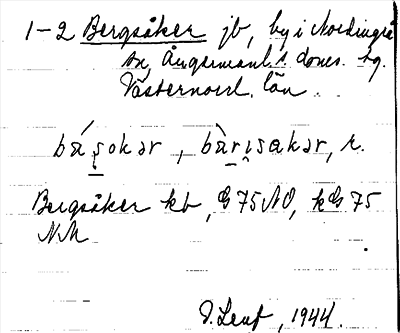 1-2 Bergsåker jb, by i Nordingrå
sn, Ångermanl:s doms. tg.
Västernorrl. län.
bá̀ʂokər, bàrɪsakər, r.
Bergsåker kb, G 75 NO, kG 75
NM
D. Lenf, 1944.